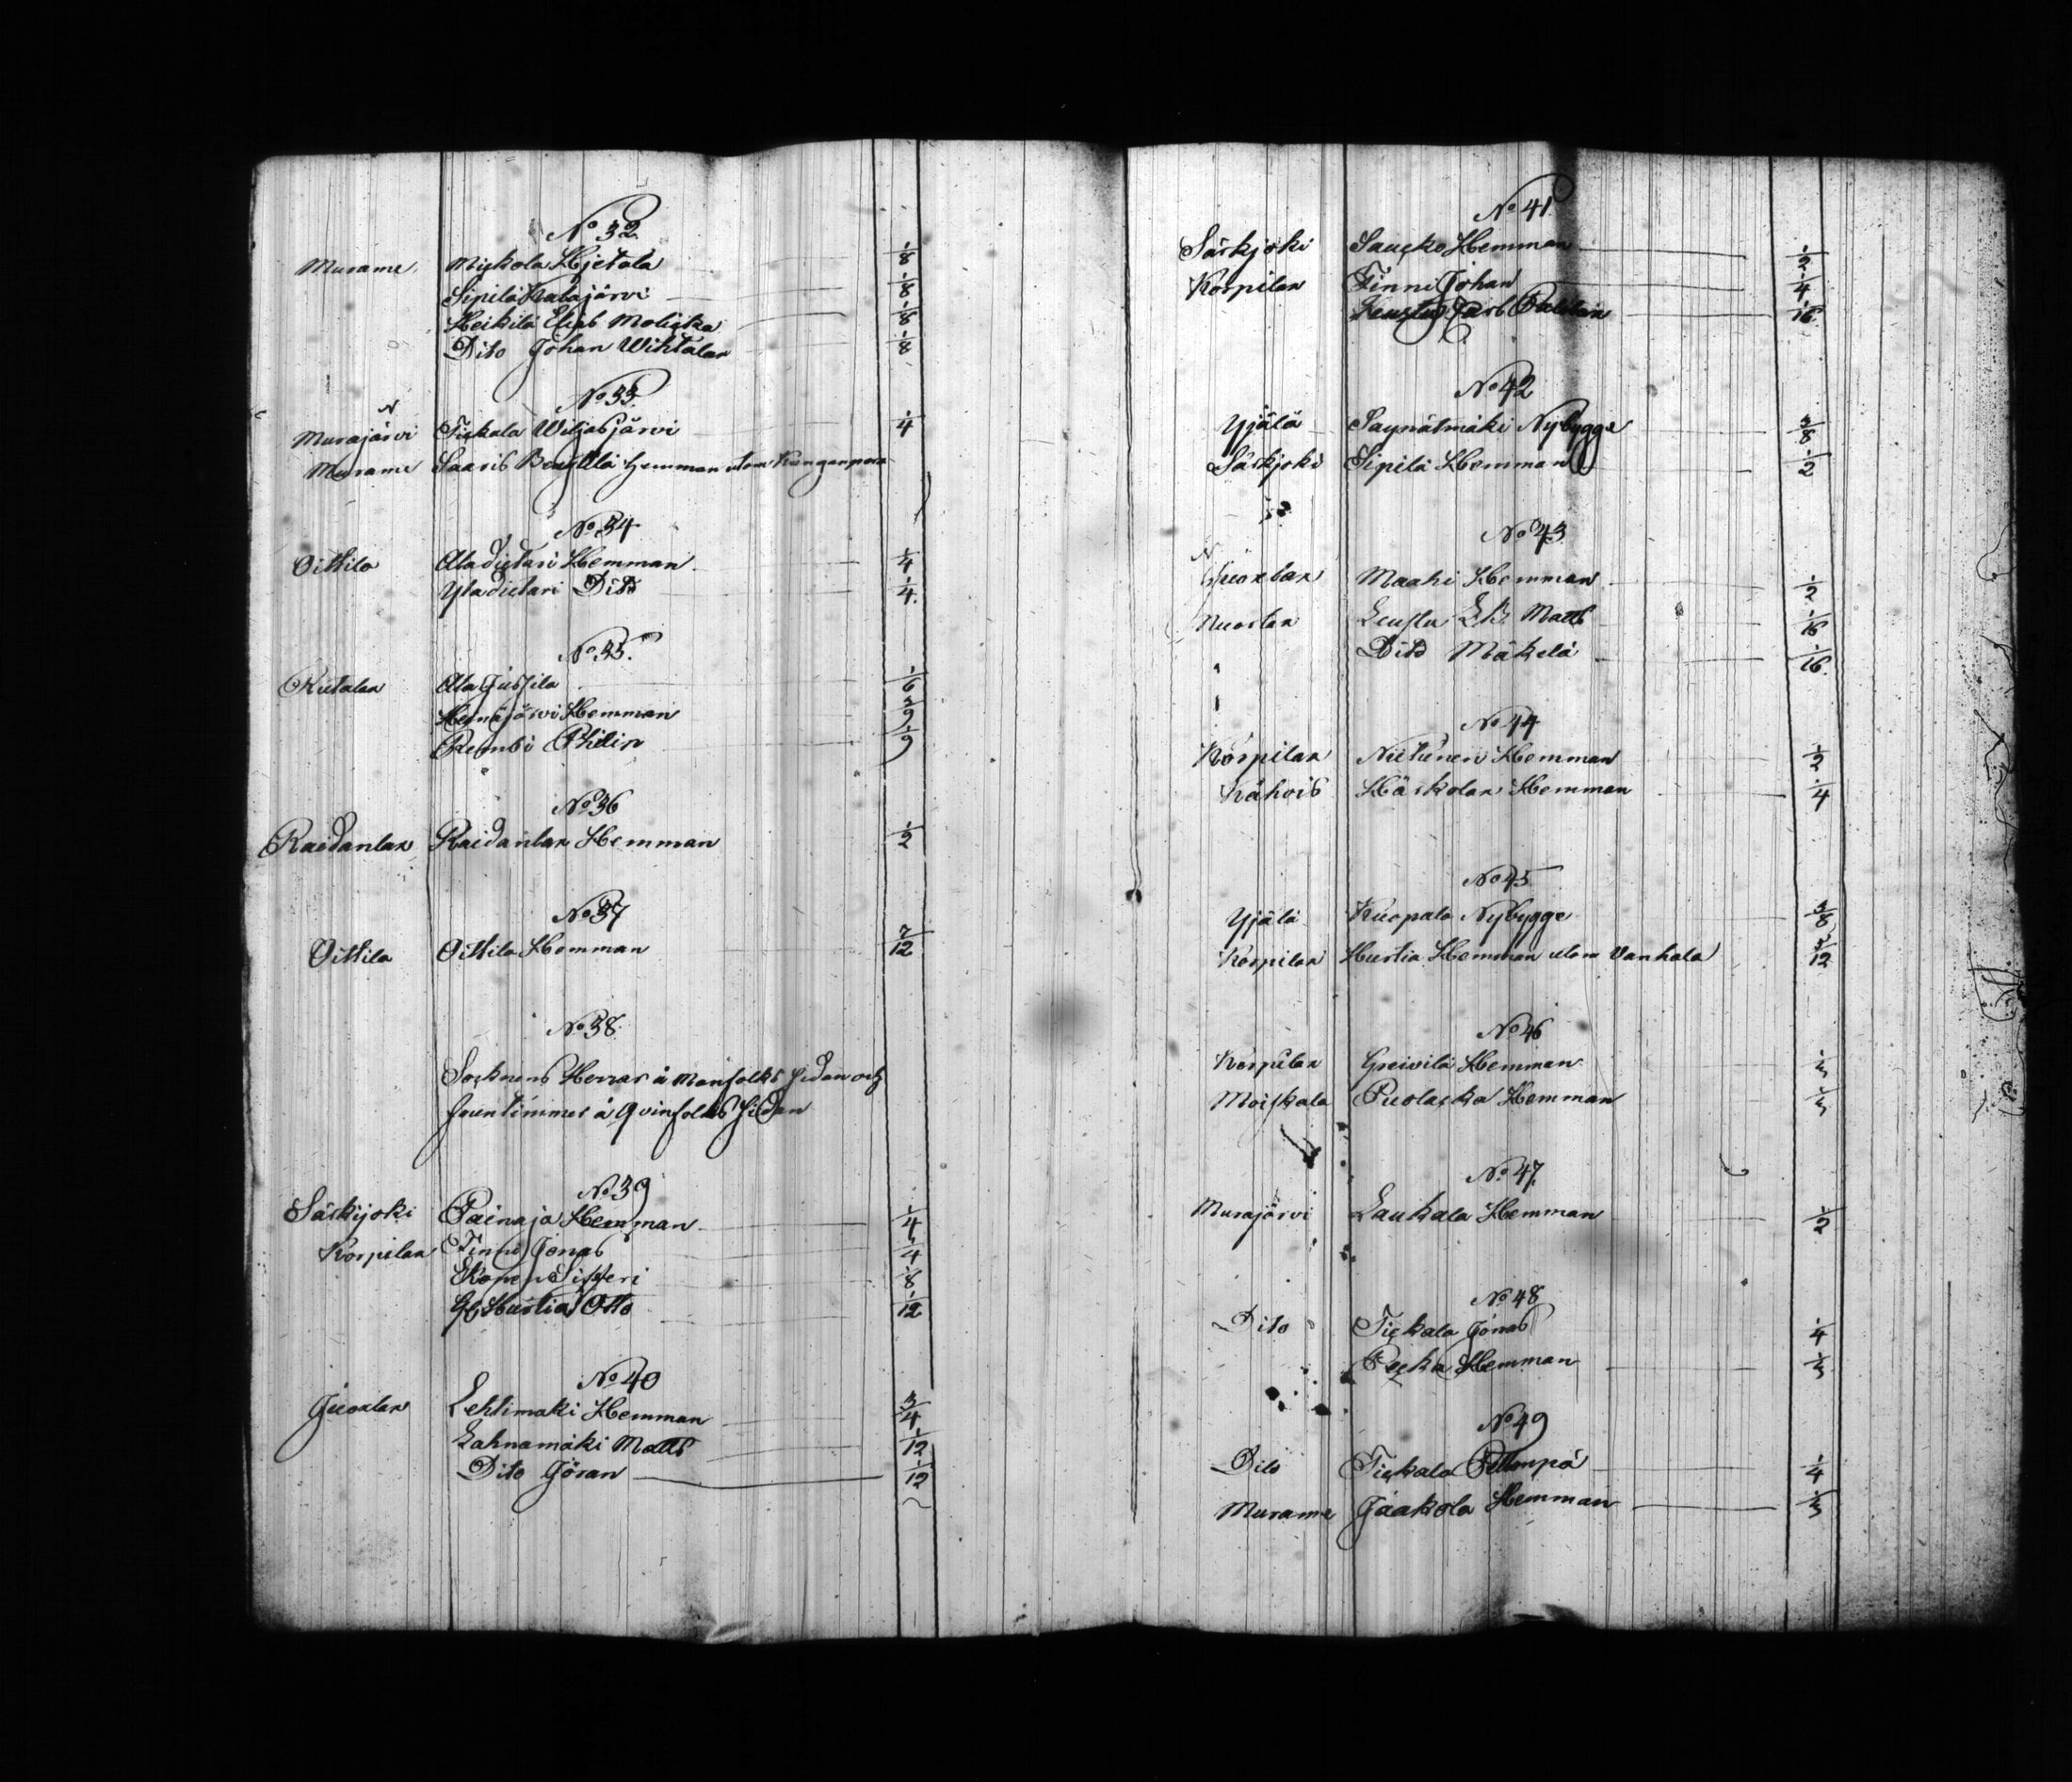 No 32
Murame Mickola Hjetala 1/8
Sipilä Kalajärvi 1/8
Heikilä Elias Molicka 1/8
Dito Johan Wihtalan 1/8
No 33.
Murajärvi Tickala Wiljasjärvi 1/4
Murame Saaris Hemman utom Kanganpera
No 34
Oittila Aladietari Hemman 1/4
Yladietari Dito 1/4
No 35.
Rutalan Ala Jussila 1/6
Heinäjärvi Hemman 2/9
Rembi Philip 1/9
No 36
Raidanlax Raidanlax Hemman 1/2
No 37
Oittila Oittila Hemman 7/12
No 38
Socknens Herrar å Manfolks sidan och
fruntimmer å Qvinfolks sidan
No 39
Säskijoki Painaja Hemman 1/4
Korpilax Tinni Jonas 1/4
Sisseri 1/8
Hurtia Otto 1/12
No 40
Juoxlax Lehtimäki Hemman 3/4
Lahnamäki Matts 1/12
Dito Jöran 1/12
No 41
Säskjoki Saucko Hemman 1/2
Korpilax Tinni Johan 1/4
1/16
No 42
Yjälä Saynätmäki Nybygge 3/8
Säskjoki Sipilä Hemman 1/2
No 43
Maahi Hemman 1/2
Matts 1/16
Dito Mäkelä 1/16
No 44
Korpilax Nietunen Hemman 1/2
Kähois Häskolan Hemman 1/4
No 45
Yjälä Kuopala Nybygge 3/8
Korpilax Hurtia Hemman utom Vanhala 5/12
No 46
Korpilax Greivilä Hemman 1/3
Moiskala Puolacka Hemman 1/3
No 47
Murajärvi Laukala Hemman 1/2
No 48
Dito Tickala Jonas 1/4
Pecka Hemman 1/3
No 49
Dito Tickala 1/4
Murame Jaakola Hemman 1/3